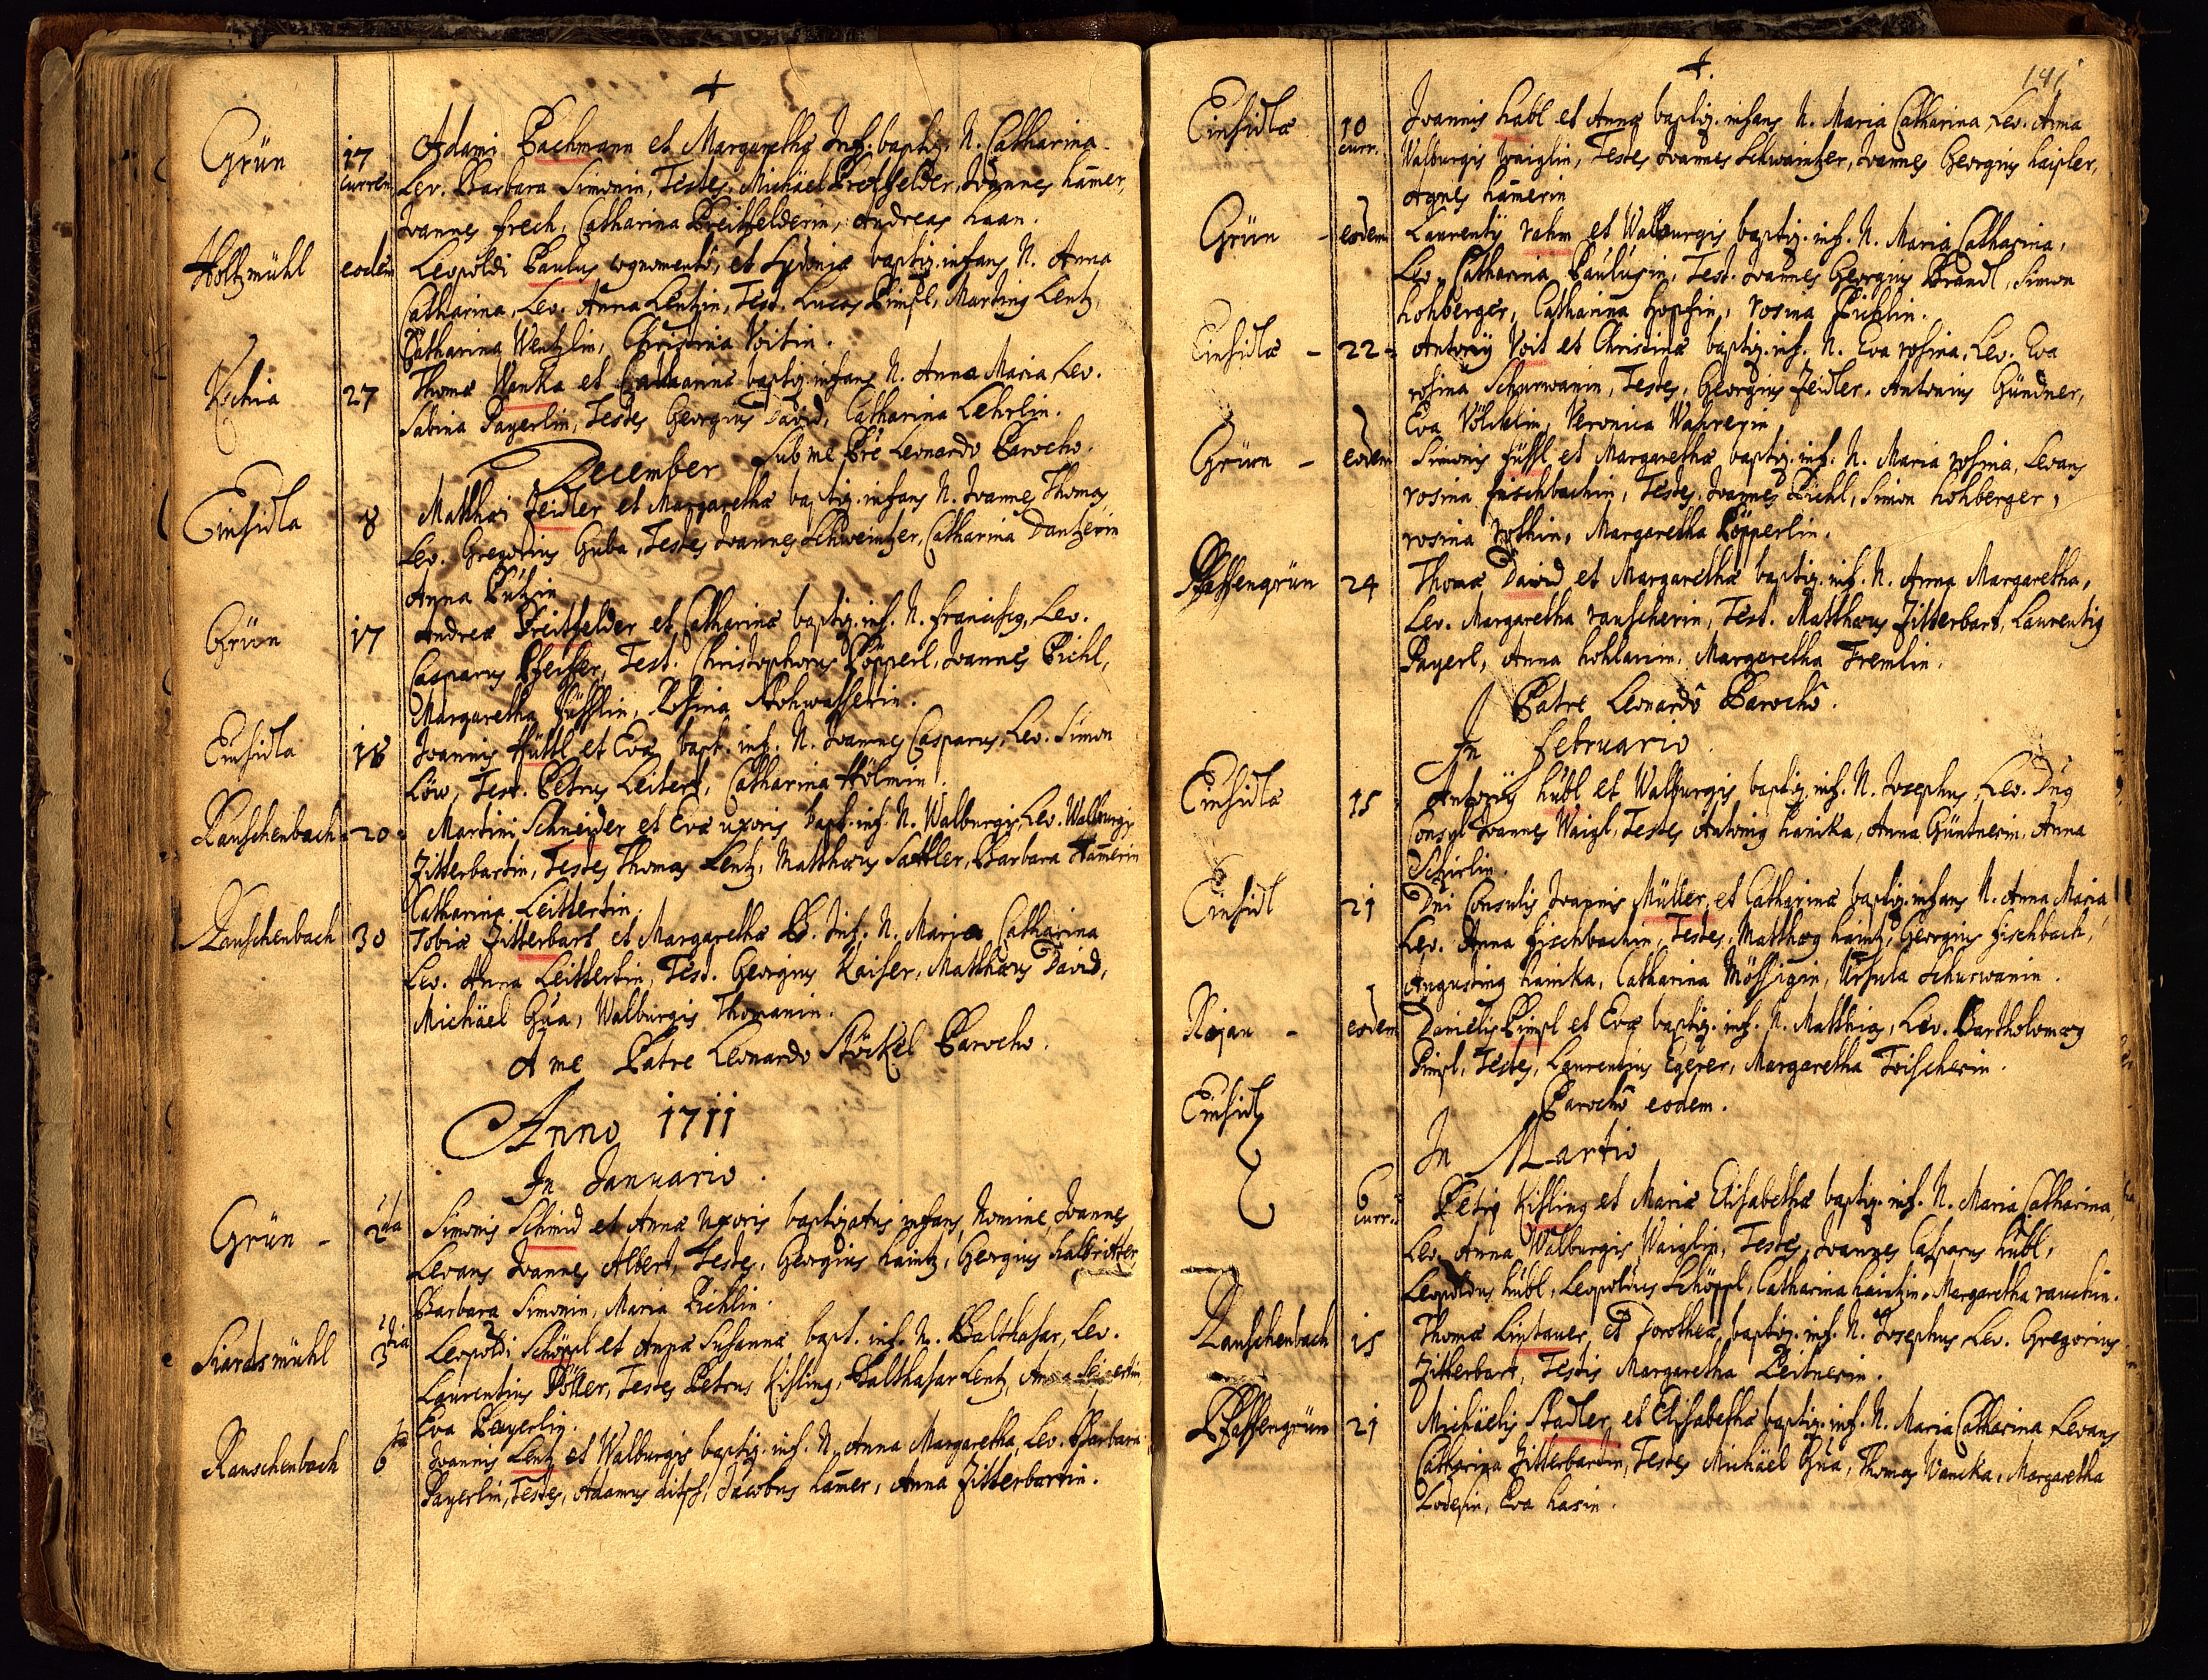 +
Grün 17 curren Adami Bachmann et Margaretha Inf. baptiz. N. Catharina
Lev. Barbara Simonin, Testes, Michäel Breitfelder, Joannes hamer,
Joannes frech, Catharina Breitfelderin, Andreas haan.
Holtzmühl eodem Leopoldi Paulus cognomento, et Sydonia baptiz. infans N. Anna
Catharina, Lev. Anna Lentzin, Test. Lucas Pimpl, Martinus Lentz,
Catharina Wentzlin, Christina Voitin.
27 Thoma Wanka et Catharina baptiz. infans N. Anna Maria, Lev.
Sabina Payerlin, Testes Georgius David, Catharina Lehrlin.
December Sub me Pre Leonardo Parocho.
Einsidla 8 Matthæi Zeidler et Margaretha baptiz. infans N. Joannes Thomas
Lev. Gregorius Guba, Testes Joannes Schweintzer, Catharina Dantzerin
Anna
Grün 17 Andreæ Breitfelder et Catharina baptiz. inf. N. franciscus, Lev.
Casparus Pfeiffer, Test. Christophorus Pöpperl, Joannes Pichl,
Margaretha Füsslin, Rosina Rohwasserin.
Einsidla 18 Joannis Hüttl et Eva bapt. inf. N. Joannes Casparus, Lev. Simon
Löw, Test. Petrus Leitert, Catharina Hölmin.
Rauschenbach 20 Martini Schneider et Eva uxoris bapt. inf. N. Walburgis, Lev. Walburgis
Zitterbartin, Testes Thomas Lentz, Matthæus Sattler, Barbara Hamerin
Catharina Leittertin.
Rauschenbach 30 Tobiæ Zitterbart et Margaretha B. Inf. N. Maria Catharina
Lev. Anna Leittertin, Test. Georgius Kaiser, Matthæus David,
Michäel Gua, Walburgis Thomanin.
A me Patre Leonardo Stöckel Parocho.
Anno 1711
In Januario.
Grün - 2da Simonis Schmid et Anna Uxoris baptizatus infans, Nomine, Joannes
Levans Joannes Albert, Testes, Georgius haintz, Georgius halbritter,
Barbara Simonin, Maria Pichlin.
Siardsmühl 3tia Leopoldi Schöppl et Anna Susanna bapt. inf. N. Balthasar, Lev.
Laurentius Pöller, Testes Petrus Kisling, Balthasar Lentz, Anna
Eva Payerlin.
Rauschenbach 6ta Joannis Lentz et Walburgis baptiz. inf. N. Anna Margaretha, Lev. Barbara
Payerlin, Testes, Adamus Jacobus hamer, Anna Zitterbartin.
+. 141
Einsidla 10 curr. Joannis habl et Anna baptiz. infans N. Maria Catharina, Lev. Anna
Walburgis waiglin, Testes Joannes Schwaintzer, Joannes Georgius haisler,
Agnes hamerin
Grün - eodem Laurentÿ rahm et Walburgis baptiz. inf. N. Maria Catharina,
Lev. Catharina Paulusin, Test. Joannes Georgius Brandl, Simon
hohberger, Catharina Hopfin, rosina Pichlin.
Einsidla - 22 Antonÿ Voit et Christina baptiz. inf. N. Eva rosina, Lev. Eva
rosina Schurwanin, Testes, Georgius Zeidler, Antonius Gündner,
Eva Völcklin, Veronica Wahrerin
Grün - eodem Simonis füssl et Margaretha baptiz. inf. N. Maria rosina, Levans
rosina fuschbachin, Testes, Joannes Pichl, Simon hohberger,
rosina rothin, Margaretha Pöpperlin.
Pfaffengrün 24 Thomæ David et Margaretha baptiz. inf. N. Anna Margaretha,
Lev. Margaretha rauscherin, Test. Matthæus Zitterbart, Laurentius
Payerl, Anna hohlarin, Margaretha Fremlin.
Patre Leonardo Parocho.
In februario.
Einsidla 15 Antonÿ hübl et Walburgis baptiz. inf. N. Josephus, Lev. Dnus
Consul Joannes Waigl, Testes Antonius hanika, Anna Güntnerin, Anna
Schirlin.
Einsidl 21 Dni Consulis Joannis Müller, et Catharina baptiz. infans N. Anna Maria
Lev. Anna fischbachin, Testes, Matthæus haintz, Georgius fischbach,
Augustinus hanika, Catharina Mössigin, Ursula Schurwanin.
Rojan - eodem Danielis Pimpl et Eva baptiz. inf. N. Matthias, Lev. Bartholomæus
Pimpl, Testes, Laurentius Egerer, Margaretha Toischerin.
Einsidl Parocho eodem.
In Martio
6 curr. Petri Kisling et Maria Elisabetha baptiz. inf. N. Maria Catharina,
Lev. Anna Walburgis Waiglin, Testes, Joannes Casparus hübl,
Leopoldus hübl, Leopoldus Schöppl, Catharina haintzin, Margaretha rauchin.
Rauschenbach 15 Thomæ Lintauer et Dorothea, baptiz. inf. N. Josephus Lev. Gregorius
Zitterbart, Testis Margaretha Leitnerin.
Pfaffengrün 21 Michäelis Stadler et Elisabetha baptiz. inf. N. Maria Catharina Levans
Catharina Zitterbartin, Testes Michäel Gua, Thomas Vancka, Margaretha
Loderin, Eva hasin.